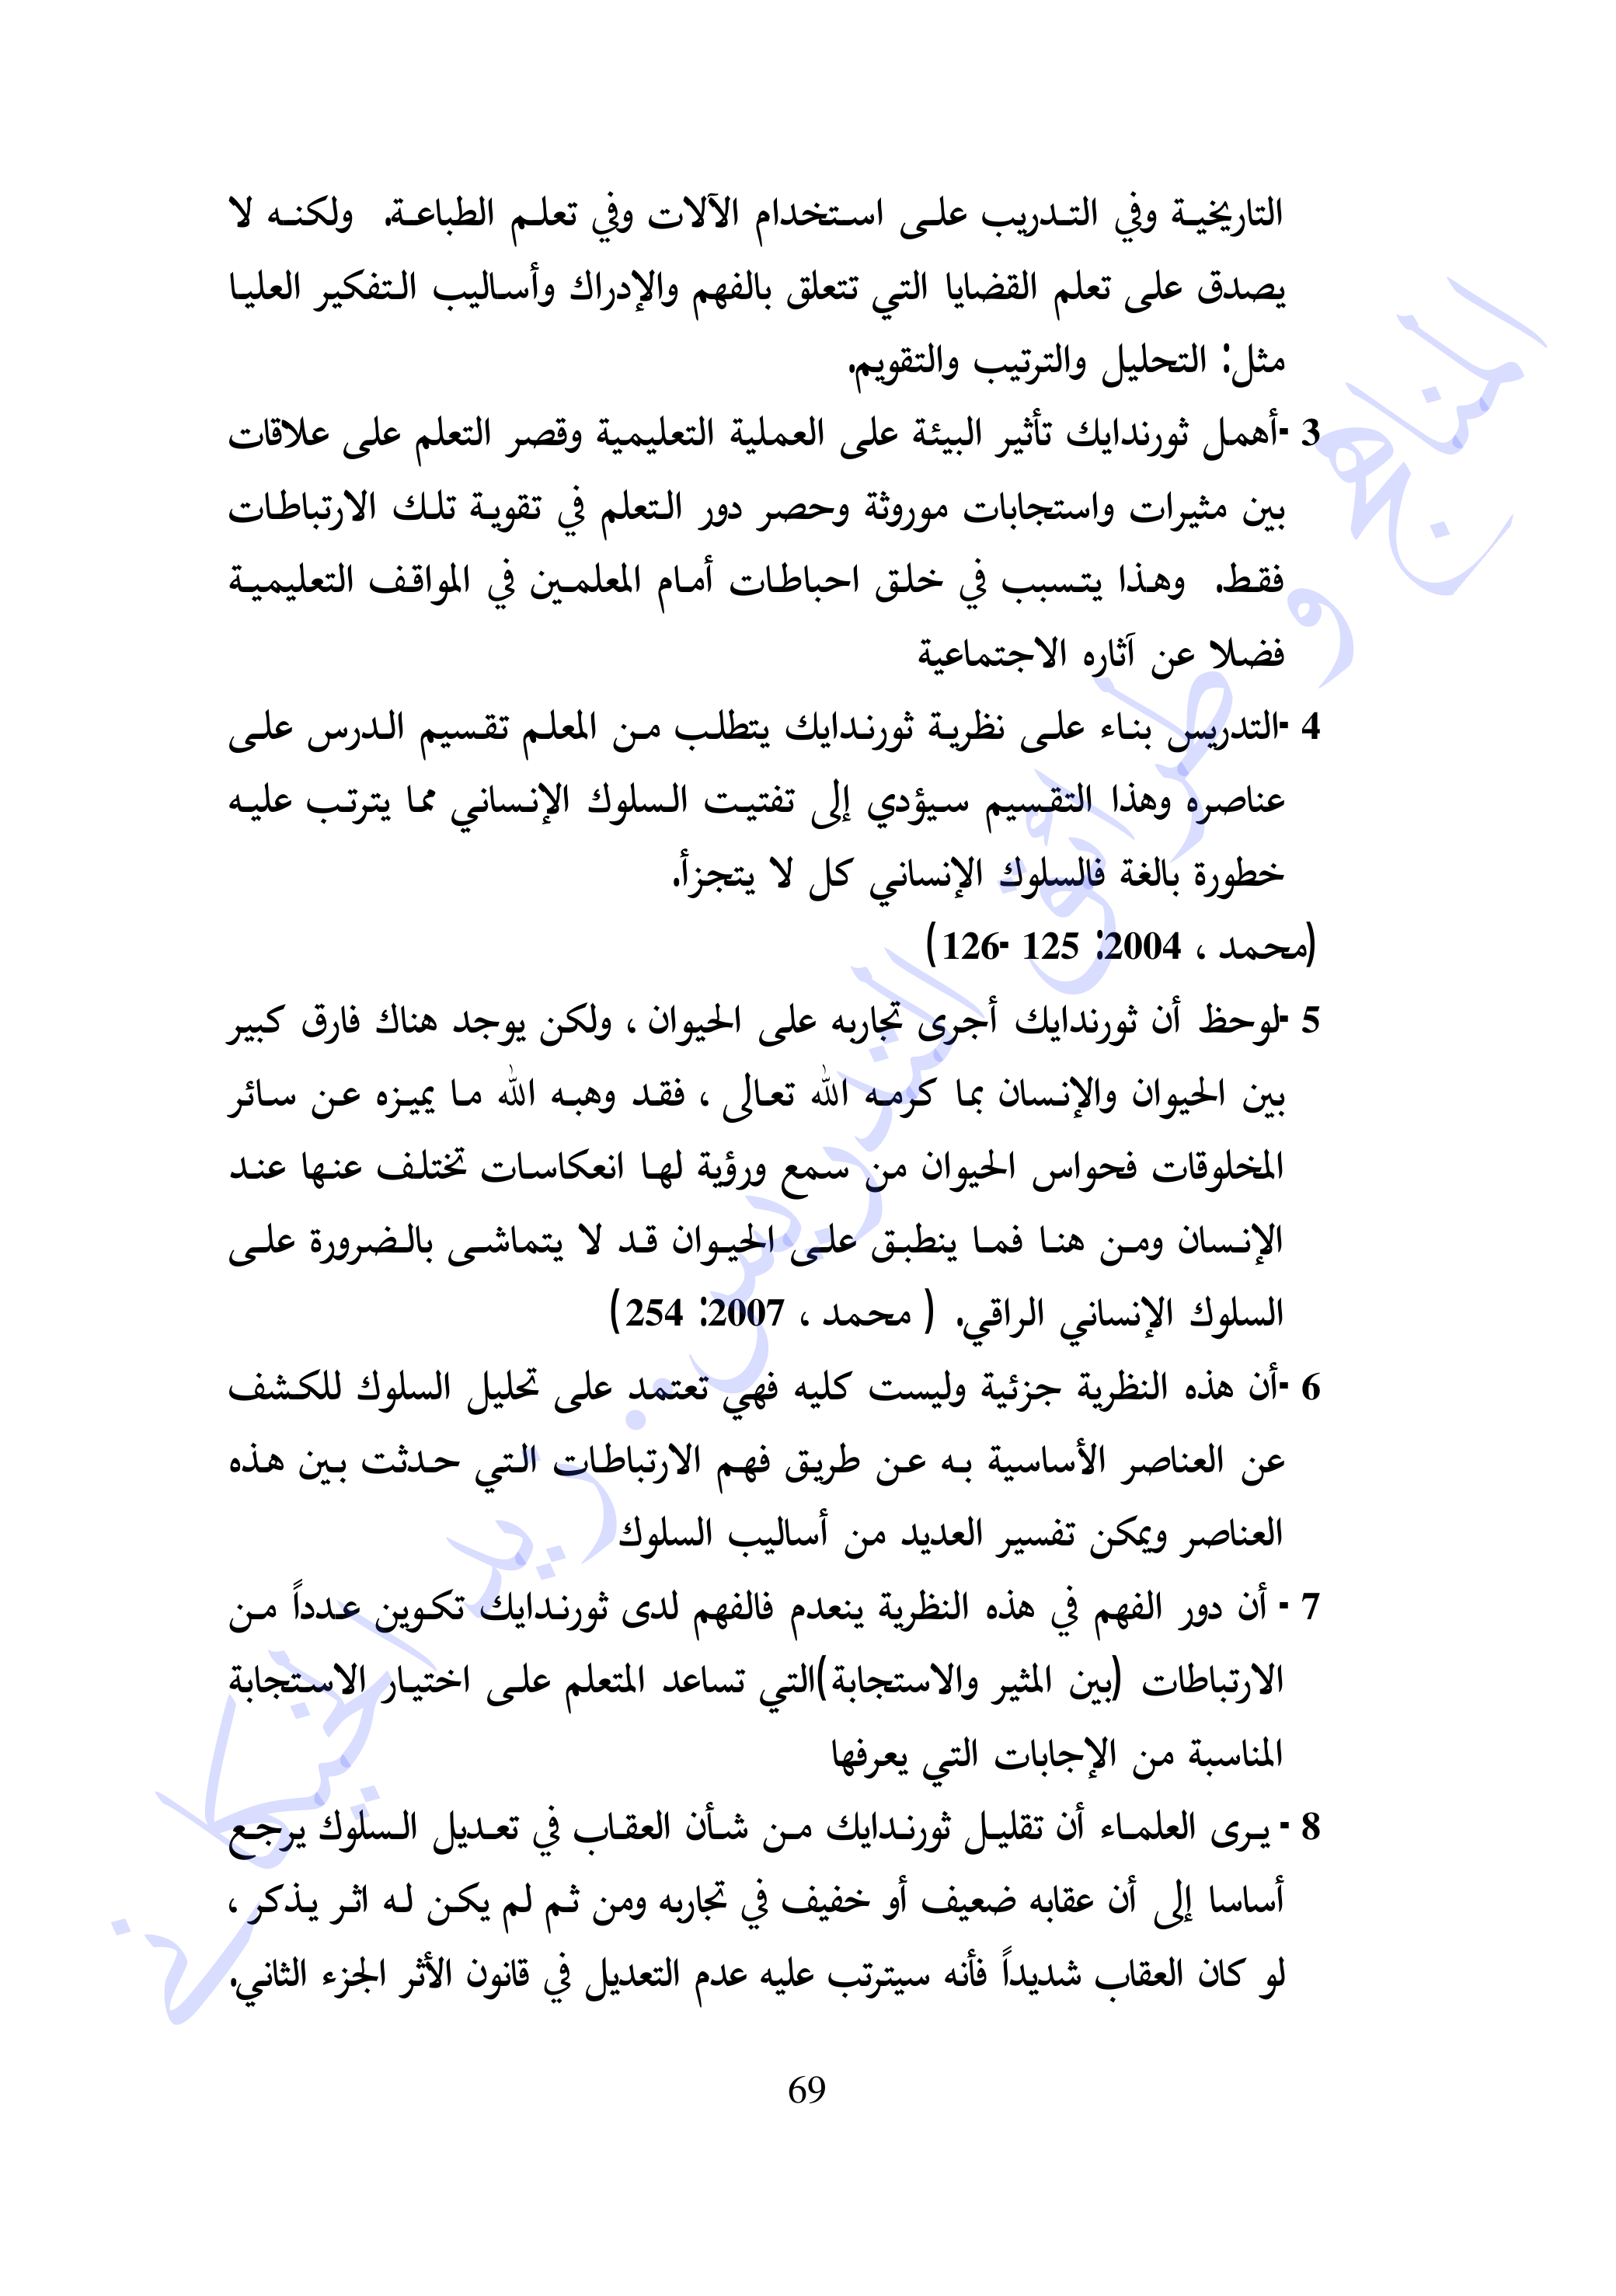 التاريخية وفي التدريب على استخدام الآلات وفي تعلم الطباعة. ولكنه لا
يصدق على تعلم القضايا التي تتعلق بالفهم والإدراك وأساليب التفكير العليا
مثل: التحليل والترتيب والتقويم.
3 -أهمل ثورندايك تأثير البيئة على العملية التعليمية وقصر التعلم على علاقات
بين مثيرات واستجابات موروثة وحصر دور التعلم في تقوية تلك الارتباطات
فقط. وهذا يتسبب في خلق احباطات أمام المعلمين في المواقف التعليمية
فضلا عن آثاره الاجتماعية
4 -التدريس بناء على نظرية ثورندايك يتطلب من المعلم تقسيم الدرس على
عناصره وهذا التقسيم سيؤدي إلى تفتيت السلوك الإنساني مما يترتب عليه
خطورة بالغة فالسلوك الإنساني كل لا يتجزأ.
(محمد ، 2004: 125 -126)
5 -لوحظ أن ثورندايك أجرى تجاربه على الحيوان ، ولكن يوجد هناك فارق كبير
بين الحيوان والإنسان بما كرمه الله تعالى ، فقد وهبه الله ما يميزه عن سائر
المخلوقات فحواس الحيوان من سمع ورؤية لها انعكاسات تختلف عنها عند
الإنسان ومن هنا فما ينطبق على الحيوان قد لا يتماشى بالضرورة على
السلوك الإنساني الراقي. ( محمد ، 2007: 254)
6 -أن هذه النظرية جزئية وليست كليه فهي تعتمد على تحليل السلوك للكشف
عن العناصر الأساسية به عن طريق فهم الارتباطات التي حدثت بين هذه
العناصر ويمكن تفسير العديد من أساليب السلوك
7 - أن دور الفهم في هذه النظرية ينعدم فالفهم لدى ثورندايك تكوين عدداً من
الارتباطات (بين المثير والاستجابة)التي تساعد المتعلم على اختيار الاستجابة
المناسبة من الإجابات التي يعرفها
8 - يرى العلماء أن تقليل ثورندايك من شأن العقاب في تعديل السلوك يرجع
أساسا إلى أن عقابه ضعيف أو خفيف في تجاربه ومن ثم لم يكن له اثر يذكر ،
لو كان العقاب شديداً فأنه سيترتب عليه عدم التعديل في قانون الأثر الجزء الثاني.
69